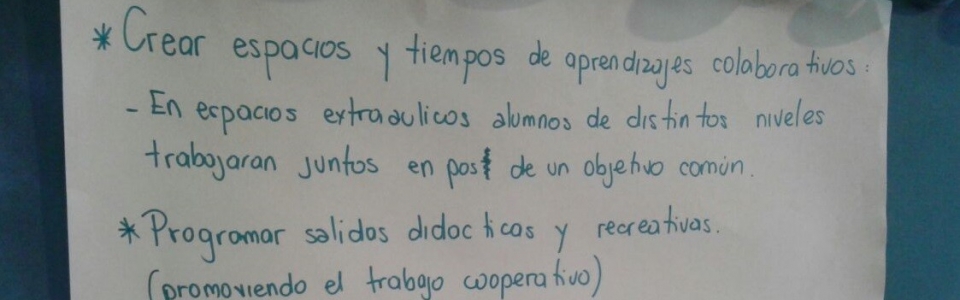 * Crear espacios y tiempos de aprendizajes colaborativos:
- En espacios extraaulicos alumnos de distintos niveles
trabajaran juntos en pos de un objetivo común.
* Programar salidas didacticas y recreativas.
(promoviendo el trabajo cooperativo)